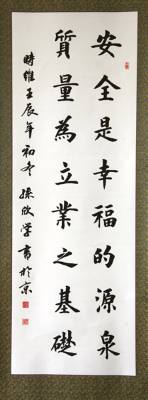 安全是幸福的源泉
質量為立業之基礎
時維壬辰年初冬孫欣學書於京